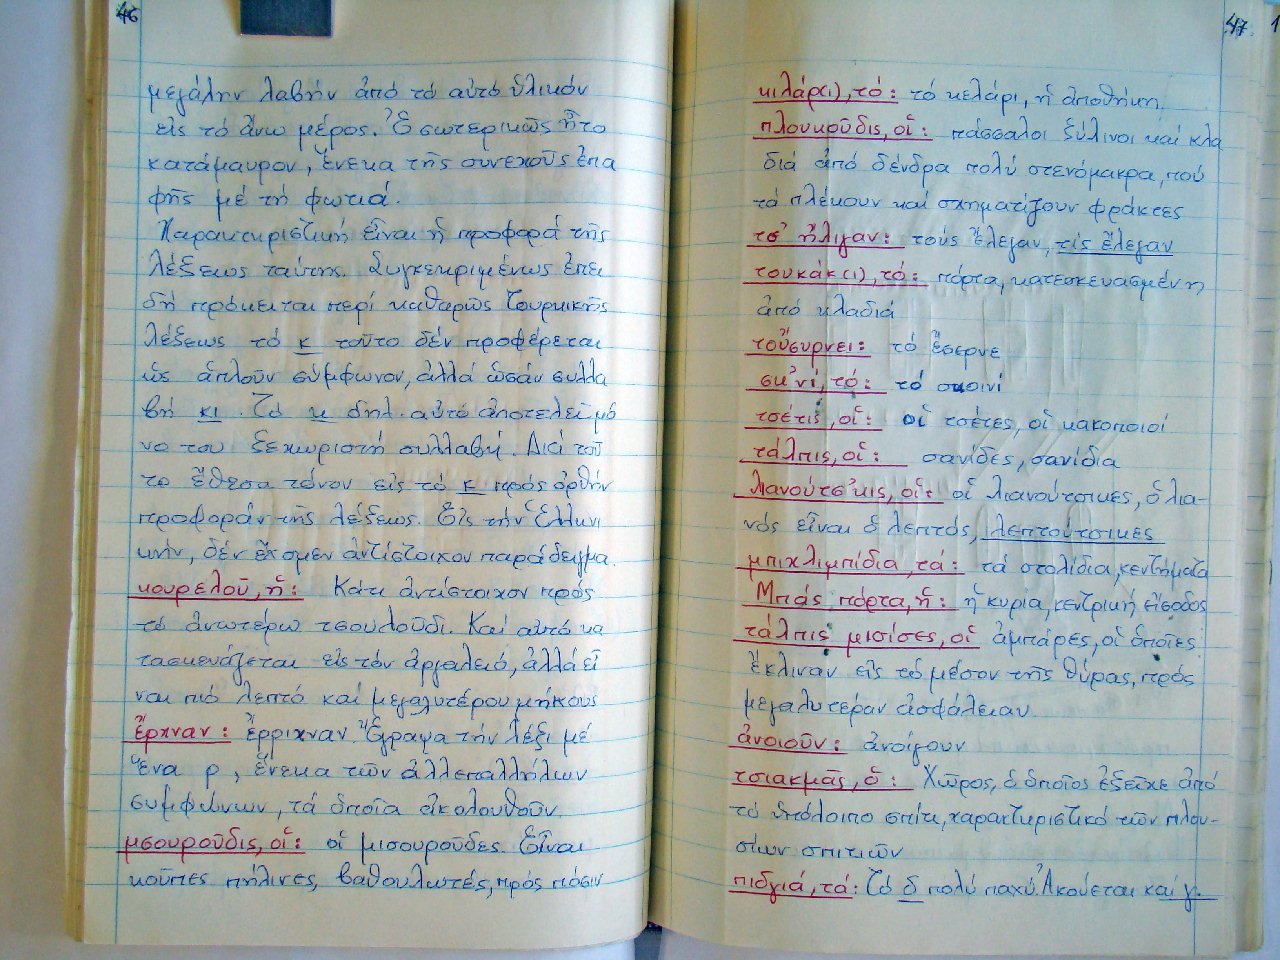 46
μεγάλην λαβήν ἀπό τό αὐτό ὑλικόν
εἰς τό ἄνω μέρος. Ἐσωτερικῶς ἦτο
κατάμαυρον, ἕνεκα τῆς συνεχοῦς ἐπα
φῆς μέ τή φωτιά.
Χαρακτηριστική εἶναι ἡ προφορά τῆς
λέξεως ταύτης. Συγκεκριμένως ἐπει
δή πρόκειται περί καθαρῶς τουρκικῆς
λέξεως τό κ τοῦτο δέν προφέρεται
ὡς ἁπλοῦν σύμφωνον, ἀλλά ὡσάν συλλα
βή κι. Τό κ δηλ. αὐτό ἀποτελεῖ μό
νο του ξεχωριστή συλλαβή. Διά τοῦ
το ἔθεσα τόνον εἰς τό κ πρός ὀρθήν
προφοράν τῆς λέξεως. Εἰς τήν Ἑλληνι
κήν, δέν ἔχομεν ἀντίστοιχον παράδειγμα.
κουρελοῦ, ἡ: Κάτι ἀντίστοιχον πρός
τό ἀνωτέρω τσουλοῦδι. Καί αὐτό κα
τασκευάζεται εἰς τόν ἀργαλειό, ἀλλά εἶ
ναι πιό λεπτό καί μεγαλυτέρου μήκους
ἔρχναν: ἔρριχναν. Ἔγραψα τήν λέξι μέ
ἕνα ρ, ἕνεκα τῶν ἀλλεπαλλήλων
συμφώνων, τά ὁποῖα ἀκολουθοῦν.
μσουροῦδις, οἱ: οἱ μισουροῦδες. Εἶναι
κοῦπες πήλινες, βαθουλωτές, πρός πόσιν
47
κιλάρ(ι), τό: τό κελάρι, ἡ ἀποθήκη.
πλουκοῦδις, οἱ: πάσσαλοι ξύλινοι καί κλα
διά ἀπό δένδρα πολύ στενόμακρα, πού
τά πλέκουν καί σχηματίζουν φράκτες
τσ' ἤλιγαν: τούς ἔλεγαν, τίς ἔλεγαν
τουκάκ(ι), τό: πόρτα, κατεσκευασμένη
ἀπό κλαδιά
τοὔσυρνει: τό ἔσερνε
σκ'νί, τό: τό σκοινί
τσέτις, οἱ: οἱ τσέτες, οἱ κακοποιοί
τάλπις, οἱ: σανίδες, σανίδια
λιανούτσ'κις, οἱ: οἱ λιανούτσικες, ὁ λια-
νός εἶναι ὁ λεπτός, λεπτούτσικες
μπιχλιμπίδια, τά: τά στολίδια, κεντήματα
Μπάς πόρτα, ἡ: ἡ κυρία, κεντρική εἴσοδος
τάλπις μισίσες, οἱ ἀμπάρες, οἱ ὁποῖες
ἔκλιναν εἰς τό μέσον τῆς θύρας, πρός
μεγαλυτέραν ἀσφάλειαν
ἀνοιοῦν: ἀνοίγουν
τσιακμᾶς, ὁ: Χῶρος, ὁ ὁποῖος ἐξεῖχε ἀπό
τό ὑπόλοιπο σπίτι, χαρακτηριστικό τῶν πλου-
σίων σπιτιῶν
πιδγιά, τά: Τό δ πολύ παχύ. Ἀκούεται καί γ.